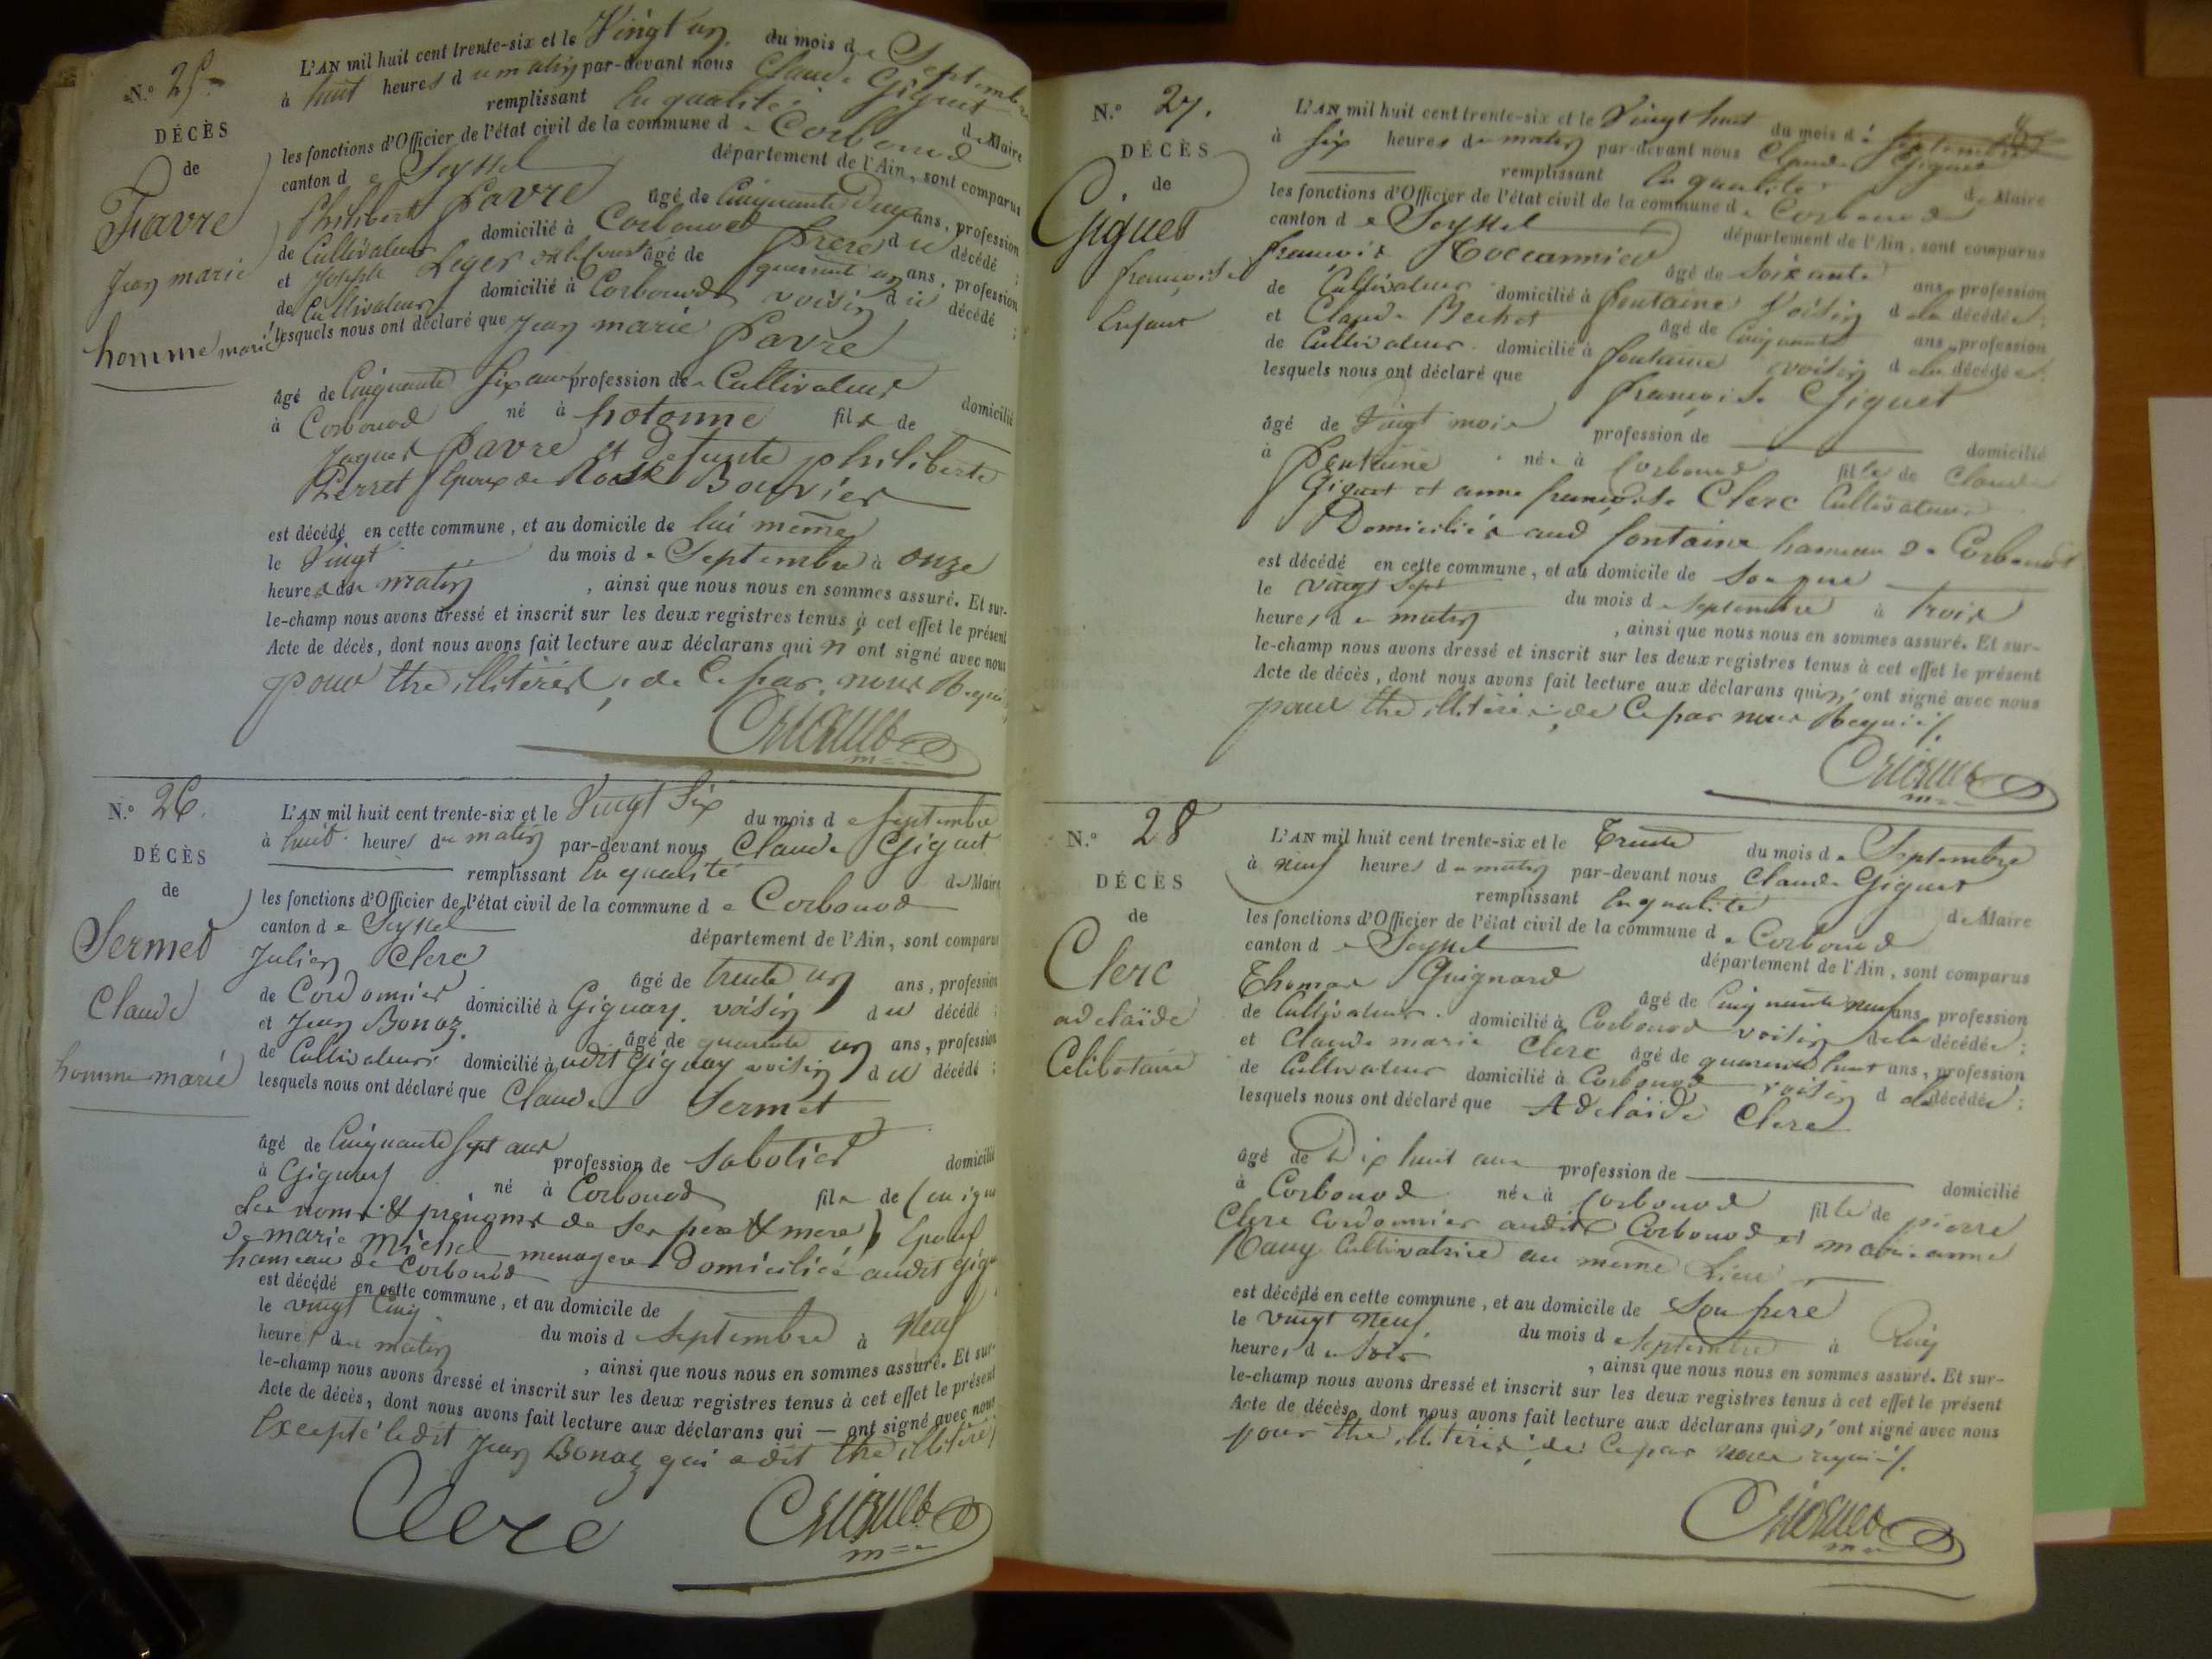 N.° 25
DÉCÈS
de
Favre
Jean marie
homme marié
L'AN mil huit cent trente-six et le Vingt un du mois de Septembre
à huit heures du matin par-devant nous Claude Giguet
remplissant en qualité de Maire
les fonctions d'Officier de l'état civil de la commune de Corbonod
canton de Seyssel département de l'Ain, sont comparus
Philibert Favre âgé de Cinquante Deux ans, profession
de Cultivateur domicilié à Corbonod frere du décédé ;
et Joseph Leger âgé de quarante un ans, profession
de Cultivateur domicilié à Corbonod voisin du décédé ;
lesquels nous ont déclaré que Jean marie Favre
âgé de Cinquante six ans profession de Cultivateur domicilié
à Corbonod né à hotonne fils de
Jaques Favre et Defunte philiberte
Perret Epoux de Bouvier
est décédé en cette commune, et au domicile de lui même
le Vingt du mois de Septembre à onze
heures du matin, ainsi que nous nous en sommes assuré. Et sur-
le-champ nous avons dressé et inscrit sur les deux registres tenus à cet effet le présent
Acte de décès, dont nous avons fait lecture aux déclarans qui n'ont signé avec nous
pour être illiterés, de ce par nous Requis
Giguet
N.° 26.
DÉCÈS
de
Sermet
Claude
homme marié
L'AN mil huit cent trente-six et le Vingt Six du mois de Septembre
à huit heures du matin par-devant nous Claude Giguet
remplissant en qualité de Maire
les fonctions d'Officier de l'état civil de la commune de Corbonod
canton de Seyssel département de l'Ain, sont comparus
Julien Clerc âgé de trente un ans, profession
de Cordonnier domicilié à Gignay voisin du décédé ;
et Jean Bonaz âgé de quarante un ans, profession
de Cultivateur domicilié à udit Gignay voisin du décédé ;
lesquels nous ont déclaré que Claude Sermet
âgé de Cinquante sept ans profession de Sabotier domicilié
à Gignay né à Corbonod fils de (on ignore
les noms & prénoms de ses pere & mere) Epoux
De marie Michel menagere Domiciliée audit Gignay
hameau de Corbonod
est décédé en cette commune, et au domicile de
le vingt Cinq du mois de Septembre à neuf
heures du matin, ainsi que nous nous en sommes assuré. Et sur-
le-champ nous avons dressé et inscrit sur les deux registres tenus à cet effet le présent
Acte de décès, dont nous avons fait lecture aux déclarans qui — ont signé avec nous
Excepté ledit Jean Bonaz qui a dit être illiteré
Clerc Giguet
N.° 27.
DÉCÈS
de
Giguet
françoise
Enfant
L'AN mil huit cent trente-six et le Vingt huit du mois de Septembre
à six heures du matin par-devant nous Claude Giguet
remplissant en qualité de Maire
les fonctions d'Officier de l'état civil de la commune de Corbonod
canton de Seyssel département de l'Ain, sont comparus
françois Coccannier âgé de Soixante ans, profession
de Cultivateur domicilié à fontaine Voisin de la décédée ;
et Claude Bechet âgé de Cinquante ans, profession
de Cultivateur domicilié à fontaine voisin de la décédée ;
lesquels nous ont déclaré que françoise Giguet
âgé de Vingt mois profession de domicilié
à fontaine née à Corbonod fille de Claude
Giguet et anne françoise Clerc Cultivateurs
Domiciliés aud fontaine hameau de Corbonod
est décédé en cette commune, et au domicile de Son pere
le vingt sept du mois de Septembre à trois
heures du matin, ainsi que nous nous en sommes assuré. Et sur-
le-champ nous avons dressé et inscrit sur les deux registres tenus à cet effet le présent
Acte de décès, dont nous avons fait lecture aux déclarans qui n'ont signé avec nous
pour être illiterés, de ce par nous Requis.
Giguet
N.° 28
DÉCÈS
de
Clerc
adelaïde
Celibataire
L'AN mil huit cent trente-six et le Trente du mois de Septembre
à neuf heures du matin par-devant nous Claude Giguet
remplissant en qualité de Maire
les fonctions d'Officier de l'état civil de la commune de Corbonod
canton de Seyssel département de l'Ain, sont comparus
Thomas Guignard âgé de Cinquante neuf ans, profession
de Cultivateur domicilié à Corbonod voisin de la décédée ;
et Claude marie Clerc âgé de quarante huit ans, profession
de Cultivateur domicilié à Corbonod voisin de la décédée ;
lesquels nous ont déclaré que Adelaïde Clerc
âgé de Dix huit ans profession de domicilié
à Corbonod née à Corbonod fille de pierre
Clerc Cordonnier audit Corbonod et marie anne
Cultivatrice au meme Lieu
est décédé en cette commune, et au domicile de Son pere
le vingt neuf du mois de Septembre à Cinq
heures du soir, ainsi que nous nous en sommes assuré. Et sur-
le-champ nous avons dressé et inscrit sur les deux registres tenus à cet effet le présent
Acte de décès, dont nous avons fait lecture aux déclarans qui n'ont signé avec nous
pour être illiterés, de ce par nous requis.
Giguet